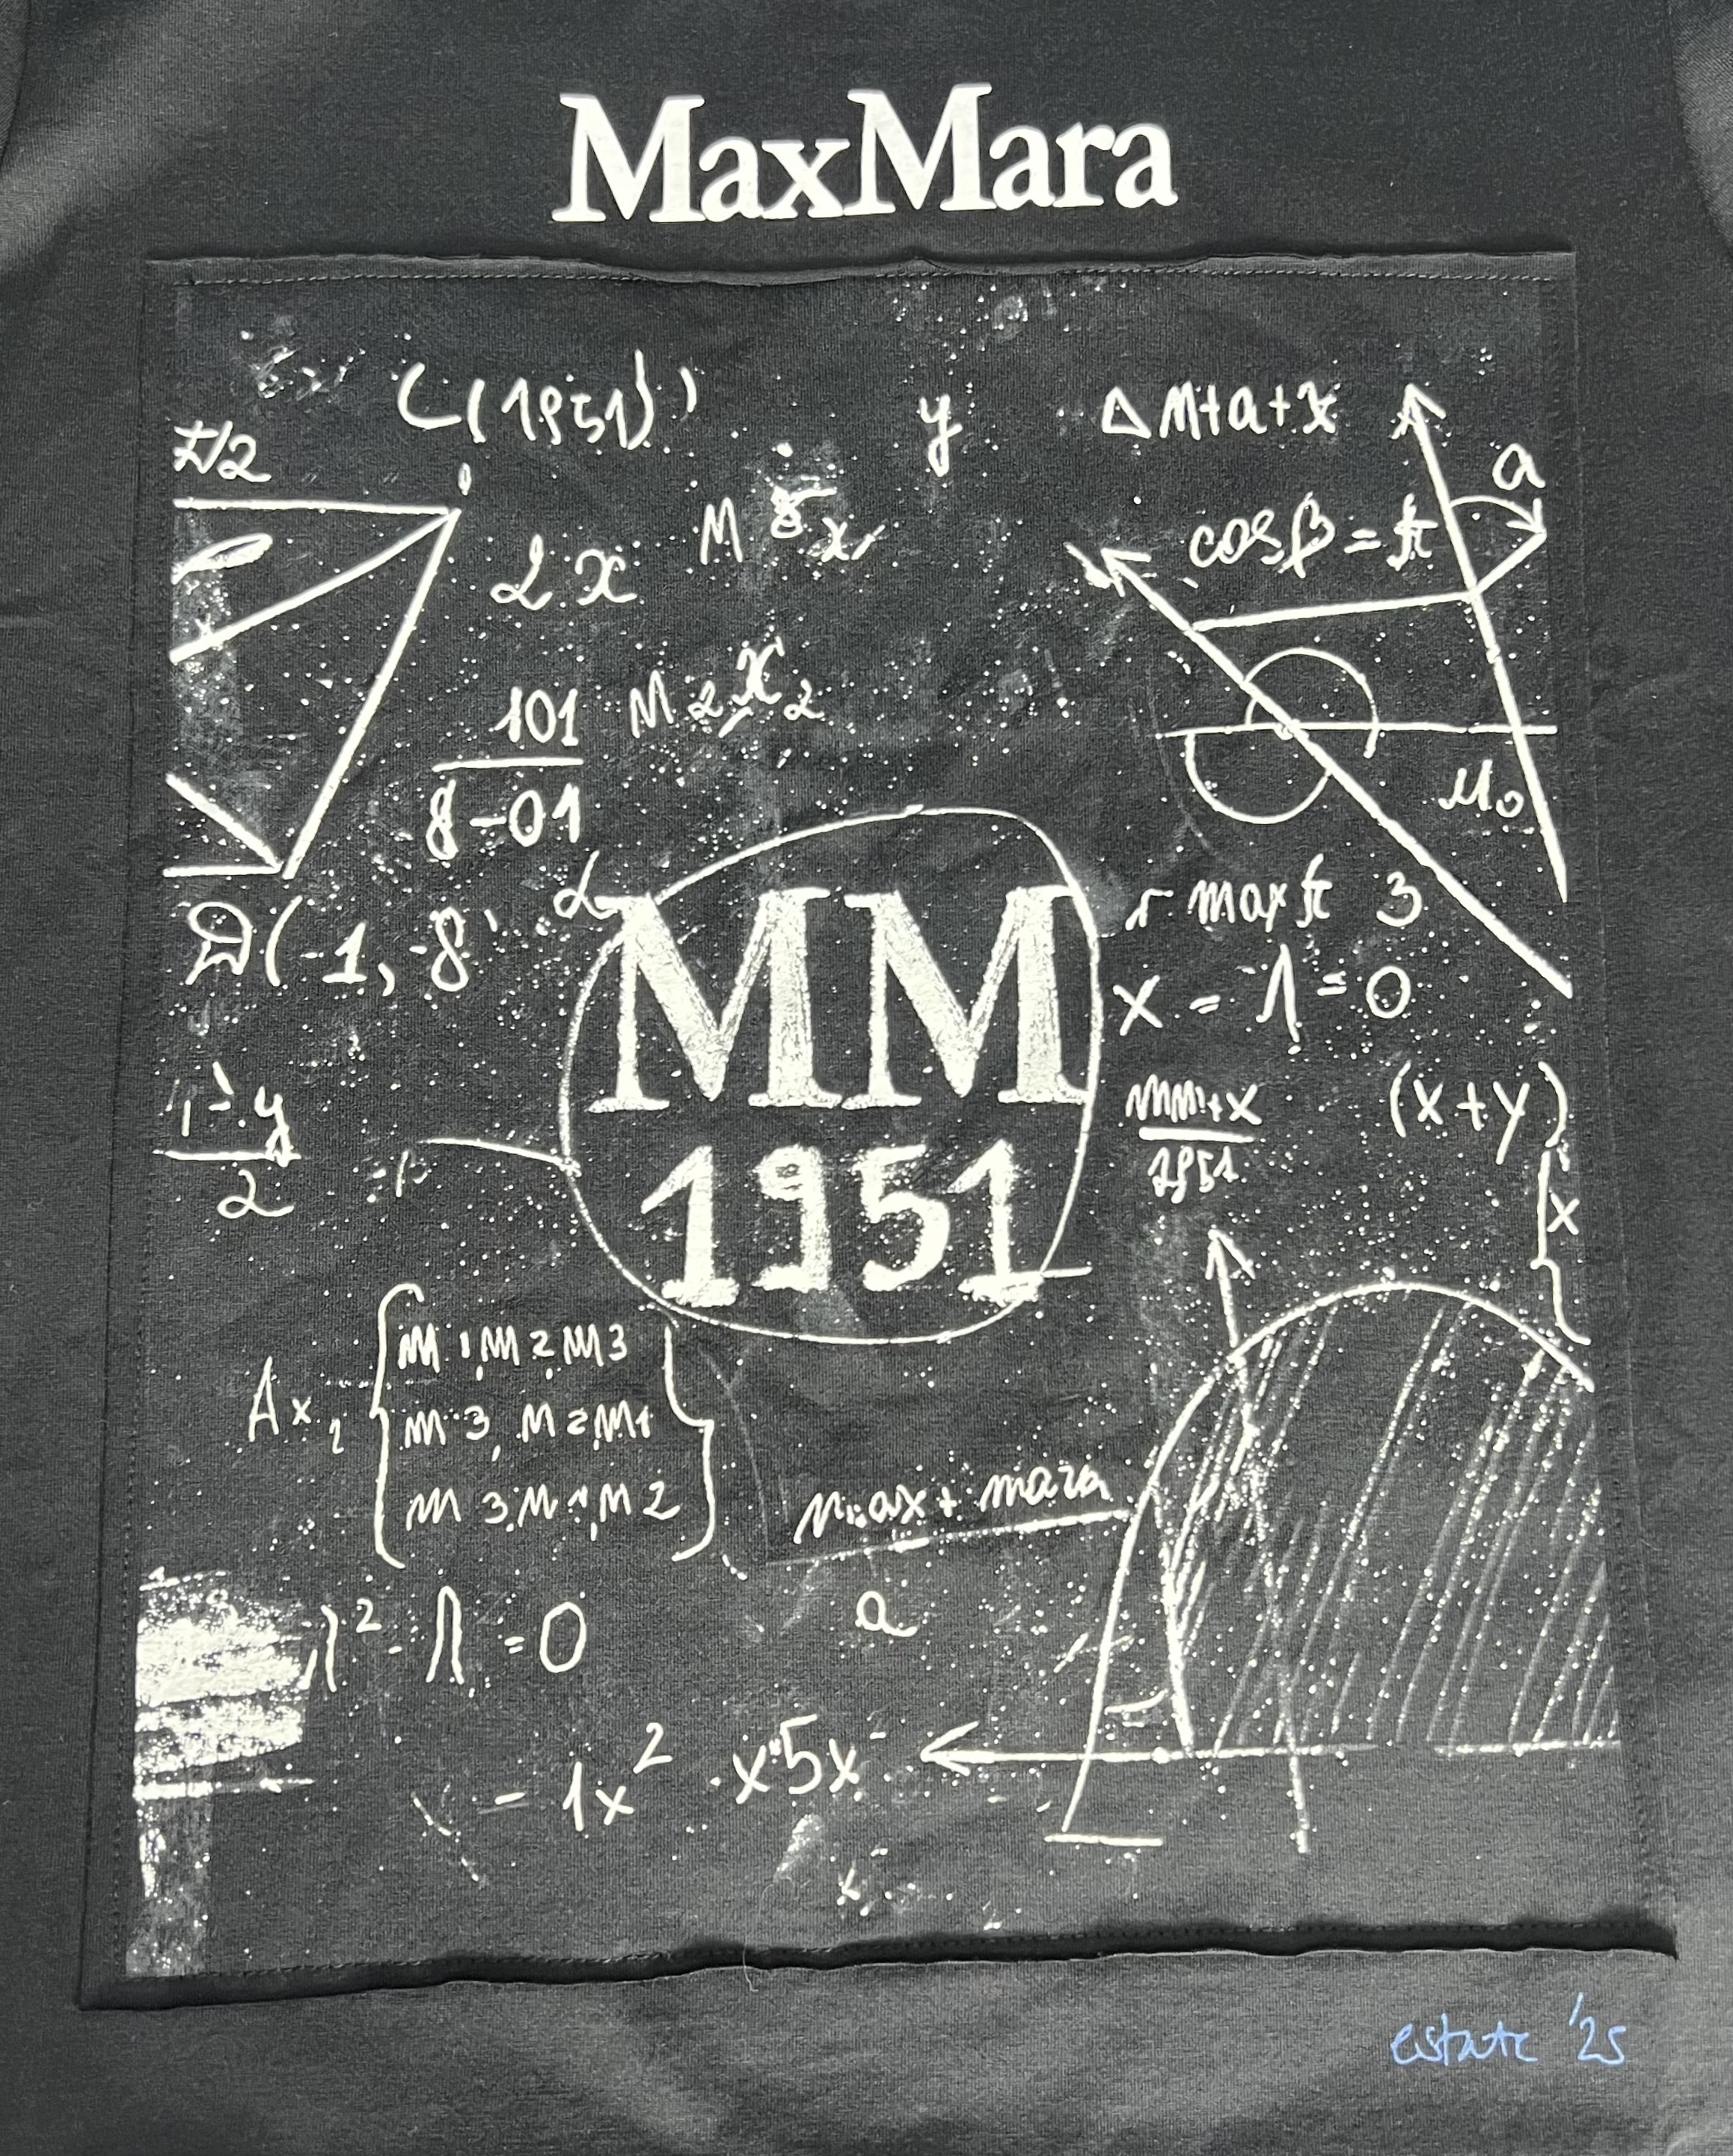 MaxMara
C(1951)
π/2
y
Δ M+a+x
a
cosβ = π
2 x
M 5 x
101
8-01
M 2 x 2
M₀
D(-1,-8
α
MM
1951
r max π 3
x - 1 = 0
1-y
2
=β
MM+x
1951
(x+y)
x
A x 2
M 1, M 2 M 3
M 3, M 2 M 1
M 3, M 1, M 2
max + mara
a
λ² - Λ = 0
- 1x² x 5x
estate '25